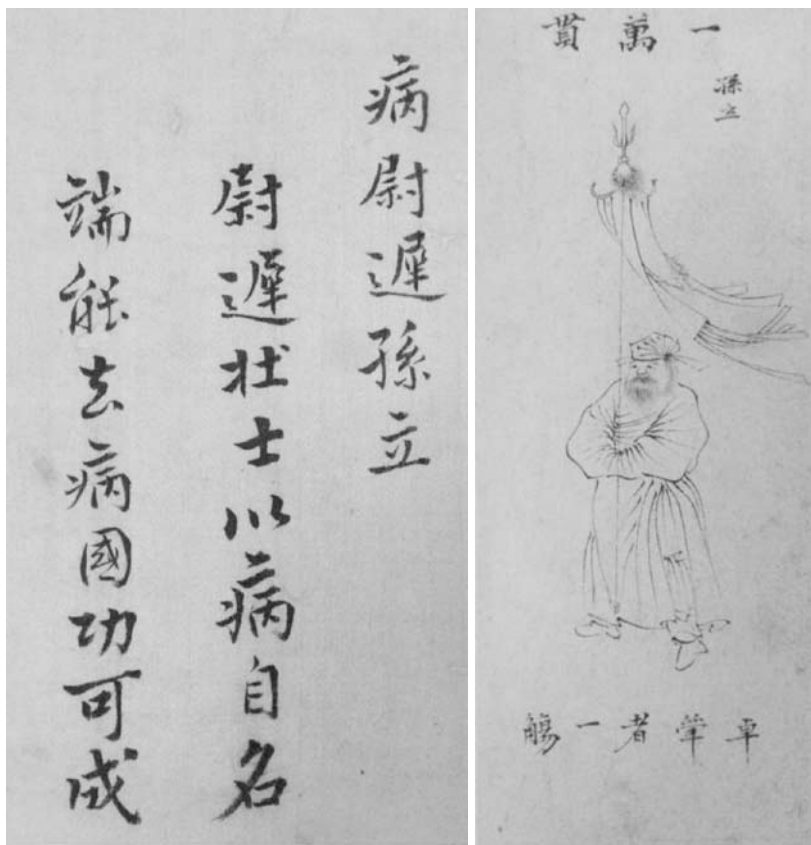 病尉遲孫立
尉遲壮士以病自名
端能去病國功可成
一萬貫
孫立
卓犖者一觴